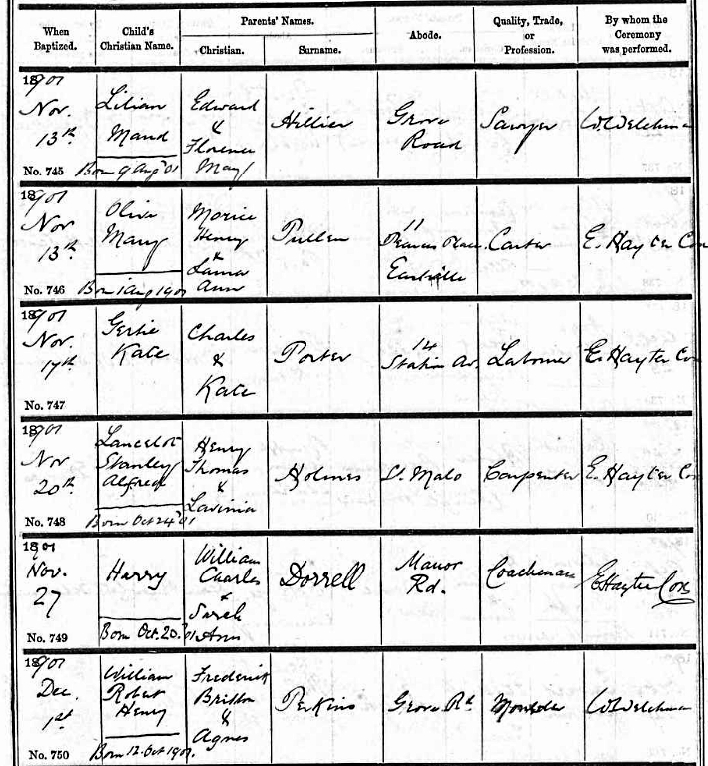 When
Baptized.
Child's
Christian Name.
Parents' Names.
Christian.
Surname.
Abode.
Quality, Trade,
or
Profession.
By whom the
Ceremony
was performed.
1901
Nov.
13th
No. 745
Lilian
Maud
Born 9 Aug '01
Edward
&
Florence
May
Hillier
Grove
Road
Sawyer
W. Welchma
1901
Nov
13th
No. 746
Olive
Mary
Born 1 Aug 1901
Henry
&
Laura
Ann
Pullen
11
Place
Eastville
Carter
E. Hayter Cox
1901
Nov.
17th
No. 747
Gertie
Kate
Charles
&
Kate
Porter
14
Station Av.
Labourer
E. Hayter Cox
1901
Nov
20th
No. 748
Lancelot
Stanley
Alfred
Born Oct 24 '01
Henry
Thomas
&
Lavinia
Holmes
St. Malo
Carpenter
E. Hayter Cox
1901
Nov.
27
No. 749
Harry
Born Oct. 20. '01
William
Charles
&
Sarah
Ann
Dorrell
Manor
Rd.
Coachman
E Hayter Cox
1901
Dec.
1st
No. 750
William
Robert
Henry
Born 12. Oct 1901.
Frederick
Britton
&
Agnes
Perkins
Grove Rd
W. Welchman